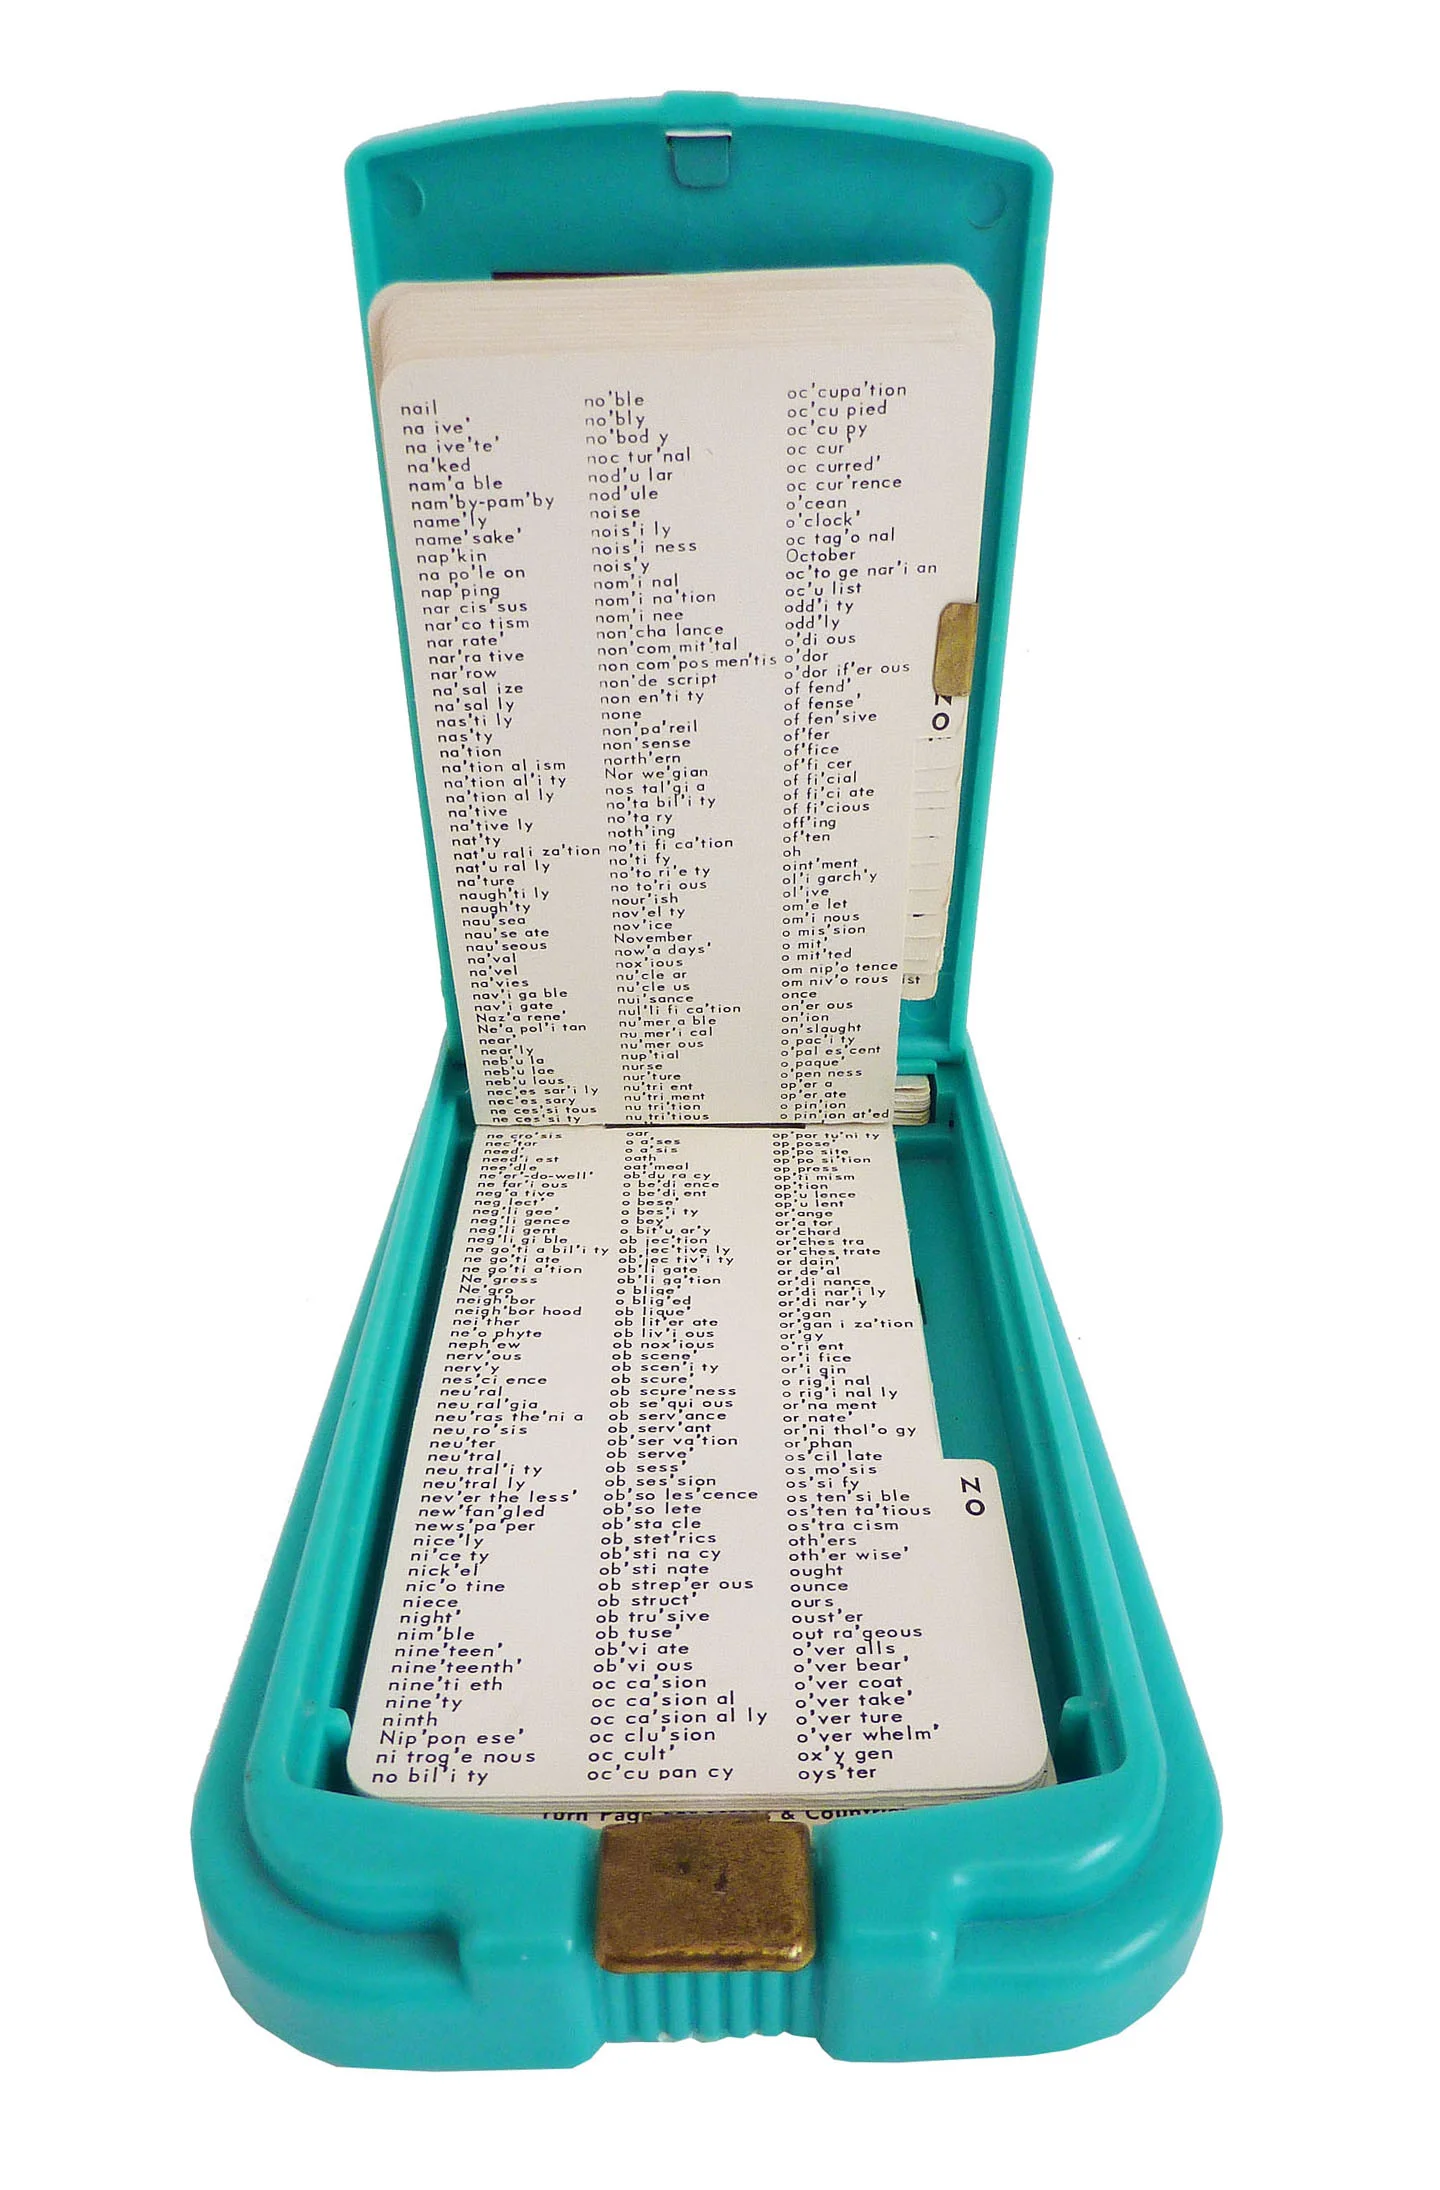 nail
na ive'
na ive'te'
na'ked
nam'a ble
nam'by-pam'by
name'ly
name'sake'
nap'kin
na po'le on
nap'ping
nar cis'sus
nar'co tism
nar rate'
nar'ra tive
nar'row
na'sal ize
na'sal ly
nas'ti ly
nas'ty
na'tion
na'tion al ism
na'tion al'i ty
na'tion al ly
na'tive
na'tive ly
nat'ty
nat'u rali za'tion
nat'u ral ly
na'ture
naugh'ti ly
naugh'ty
nau'sea
nau'se ate
nau'seous
na'val
na'vel
na'vies
nav'i ga ble
nav'i gate
Naz'a rene'
Ne'a pol'i tan
near'
near'ly
neb'u la
neb'u lae
neb'u lous
nec'es sar'i ly
nec'es sary
ne ces'si tous
ne ces'si ty
no'ble
no'bly
no'bod y
noc tur'nal
nod'u lar
nod'ule
noise
nois'i ly
nois'i ness
nois'y
nom'i nal
nom'i na'tion
nom'i nee
non'cha lance
non'com mit'tal
non com'pos men'tis
non'de script
non en'ti ty
none
non'pa'reil
non'sense
north'ern
Nor we'gian
nos tal'gi a
no'ta bil'i ty
no'ta ry
noth'ing
no'ti fi ca'tion
no'ti fy
no'to ri'e ty
no to'ri ous
nour'ish
nov'el ty
nov'ice
November
now'a days'
nox'ious
nu'cle ar
nu'cle us
nui'sance
nul'li fi ca'tion
nu'mer a ble
nu mer'i cal
nu'mer ous
nup'tial
nurse
nur'ture
nu'tri ent
nu'tri ment
nu tri'tion
nu tri'tious
oc'cupa'tion
oc'cu pied
oc'cu py
oc cur'
oc curred'
oc cur'rence
o'cean
o'clock'
oc tag'o nal
October
oc'to ge nar'i an
oc'u list
odd'i ty
odd'ly
o'di ous
o'dor
o'dor if'er ous
of fend'
of fense'
of fen'sive
of'fer
of'fice
of'fi cer
of fi'cial
of fi'ci ate
of fi'cious
off'ing
of'ten
oh
oint'ment
ol'i garch'y
ol'ive
om'e let
om'i nous
o mis'sion
o mit'
o mit'ted
om nip'o tence
om niv'o rous
once
on'er ous
on'ion
on'slaught
o pac'i ty
o'pal es'cent
o paque'
o'pen ness
op'er a
op'er ate
o pin'ion
o pin'ion at'ed
NO
ist
ne cro'sis
nec'tar
need'
need'i est
nee'dle
ne'er'-do-well'
ne far'i ous
neg'a tive
neg lect'
neg'li gee'
neg'li gence
neg'li gent
neg'li gi ble
ne go'ti a bil'i ty
ne go'ti ate
ne go'ti a'tion
Ne'gress
Ne'gro
neigh'bor
neigh'bor hood
nei'ther
ne'o phyte
neph'ew
nerv'ous
nerv'y
nes'ci ence
neu'ral
neu ral'gia
neu'ras the'ni a
neu ro'sis
neu'ter
neu'tral
neu tral'i ty
neu'tral ly
nev'er the less'
new'fan'gled
news'pa'per
nice'ly
ni'ce ty
nick'el
nic'o tine
niece
night'
nim'ble
nine'teen'
nine'teenth'
nine'ti eth
nine'ty
ninth
Nip'pon ese'
ni trog'e nous
no bil'i ty
oar
o a'ses
o a'sis
oath
oat'meal
ob'du ra cy
o be'di ence
o be'di ent
o bese'
o bes'i ty
o bey'
o bit'u ar'y
ob jec'tion
ob jec'tive ly
ob'jec tiv'i ty
ob'li gate
ob'li ga'tion
o blige'
o blig'ed
ob lique'
ob lit'er ate
ob liv'i ous
ob nox'ious
ob scene'
ob scen'i ty
ob scure'
ob scure'ness
ob se'qui ous
ob serv'ance
ob serv'ant
ob'ser va'tion
ob serve'
ob sess'
ob ses'sion
ob'so les'cence
ob'so lete
ob'sta cle
ob stet'rics
ob'sti na cy
ob'sti nate
ob strep'er ous
ob struct'
ob tru'sive
ob tuse'
ob'vi ate
ob'vi ous
oc ca'sion
oc ca'sion al
oc ca'sion al ly
oc clu'sion
oc cult'
oc'cu pan cy
op'por tu'ni ty
op pose'
op'po site
op'po si'tion
op press
op'ti mism
op'tion
op'u lence
op'u lent
or'ange
or'a tor
or'chard
or'ches tra
or'ches trate
or dain'
or de'al
or'di nance
or'di nar'i ly
or'di nar'y
or'gan
or'gan i za'tion
or'gy
o'ri ent
or'i fice
or'i gin
o rig'i nal
o rig'i nal ly
or'na ment
or nate'
or'ni thol'o gy
or'phan
os'cil late
os mo'sis
os'si fy
os ten'si ble
os'ten ta'tious
os'tra cism
oth'ers
oth'er wise'
ought
ounce
ours
oust'er
out ra'geous
o'ver alls
o'ver bear'
o'ver coat
o'ver take'
o'ver ture
o'ver whelm'
ox'y gen
oys'ter
NO
Turn Page &